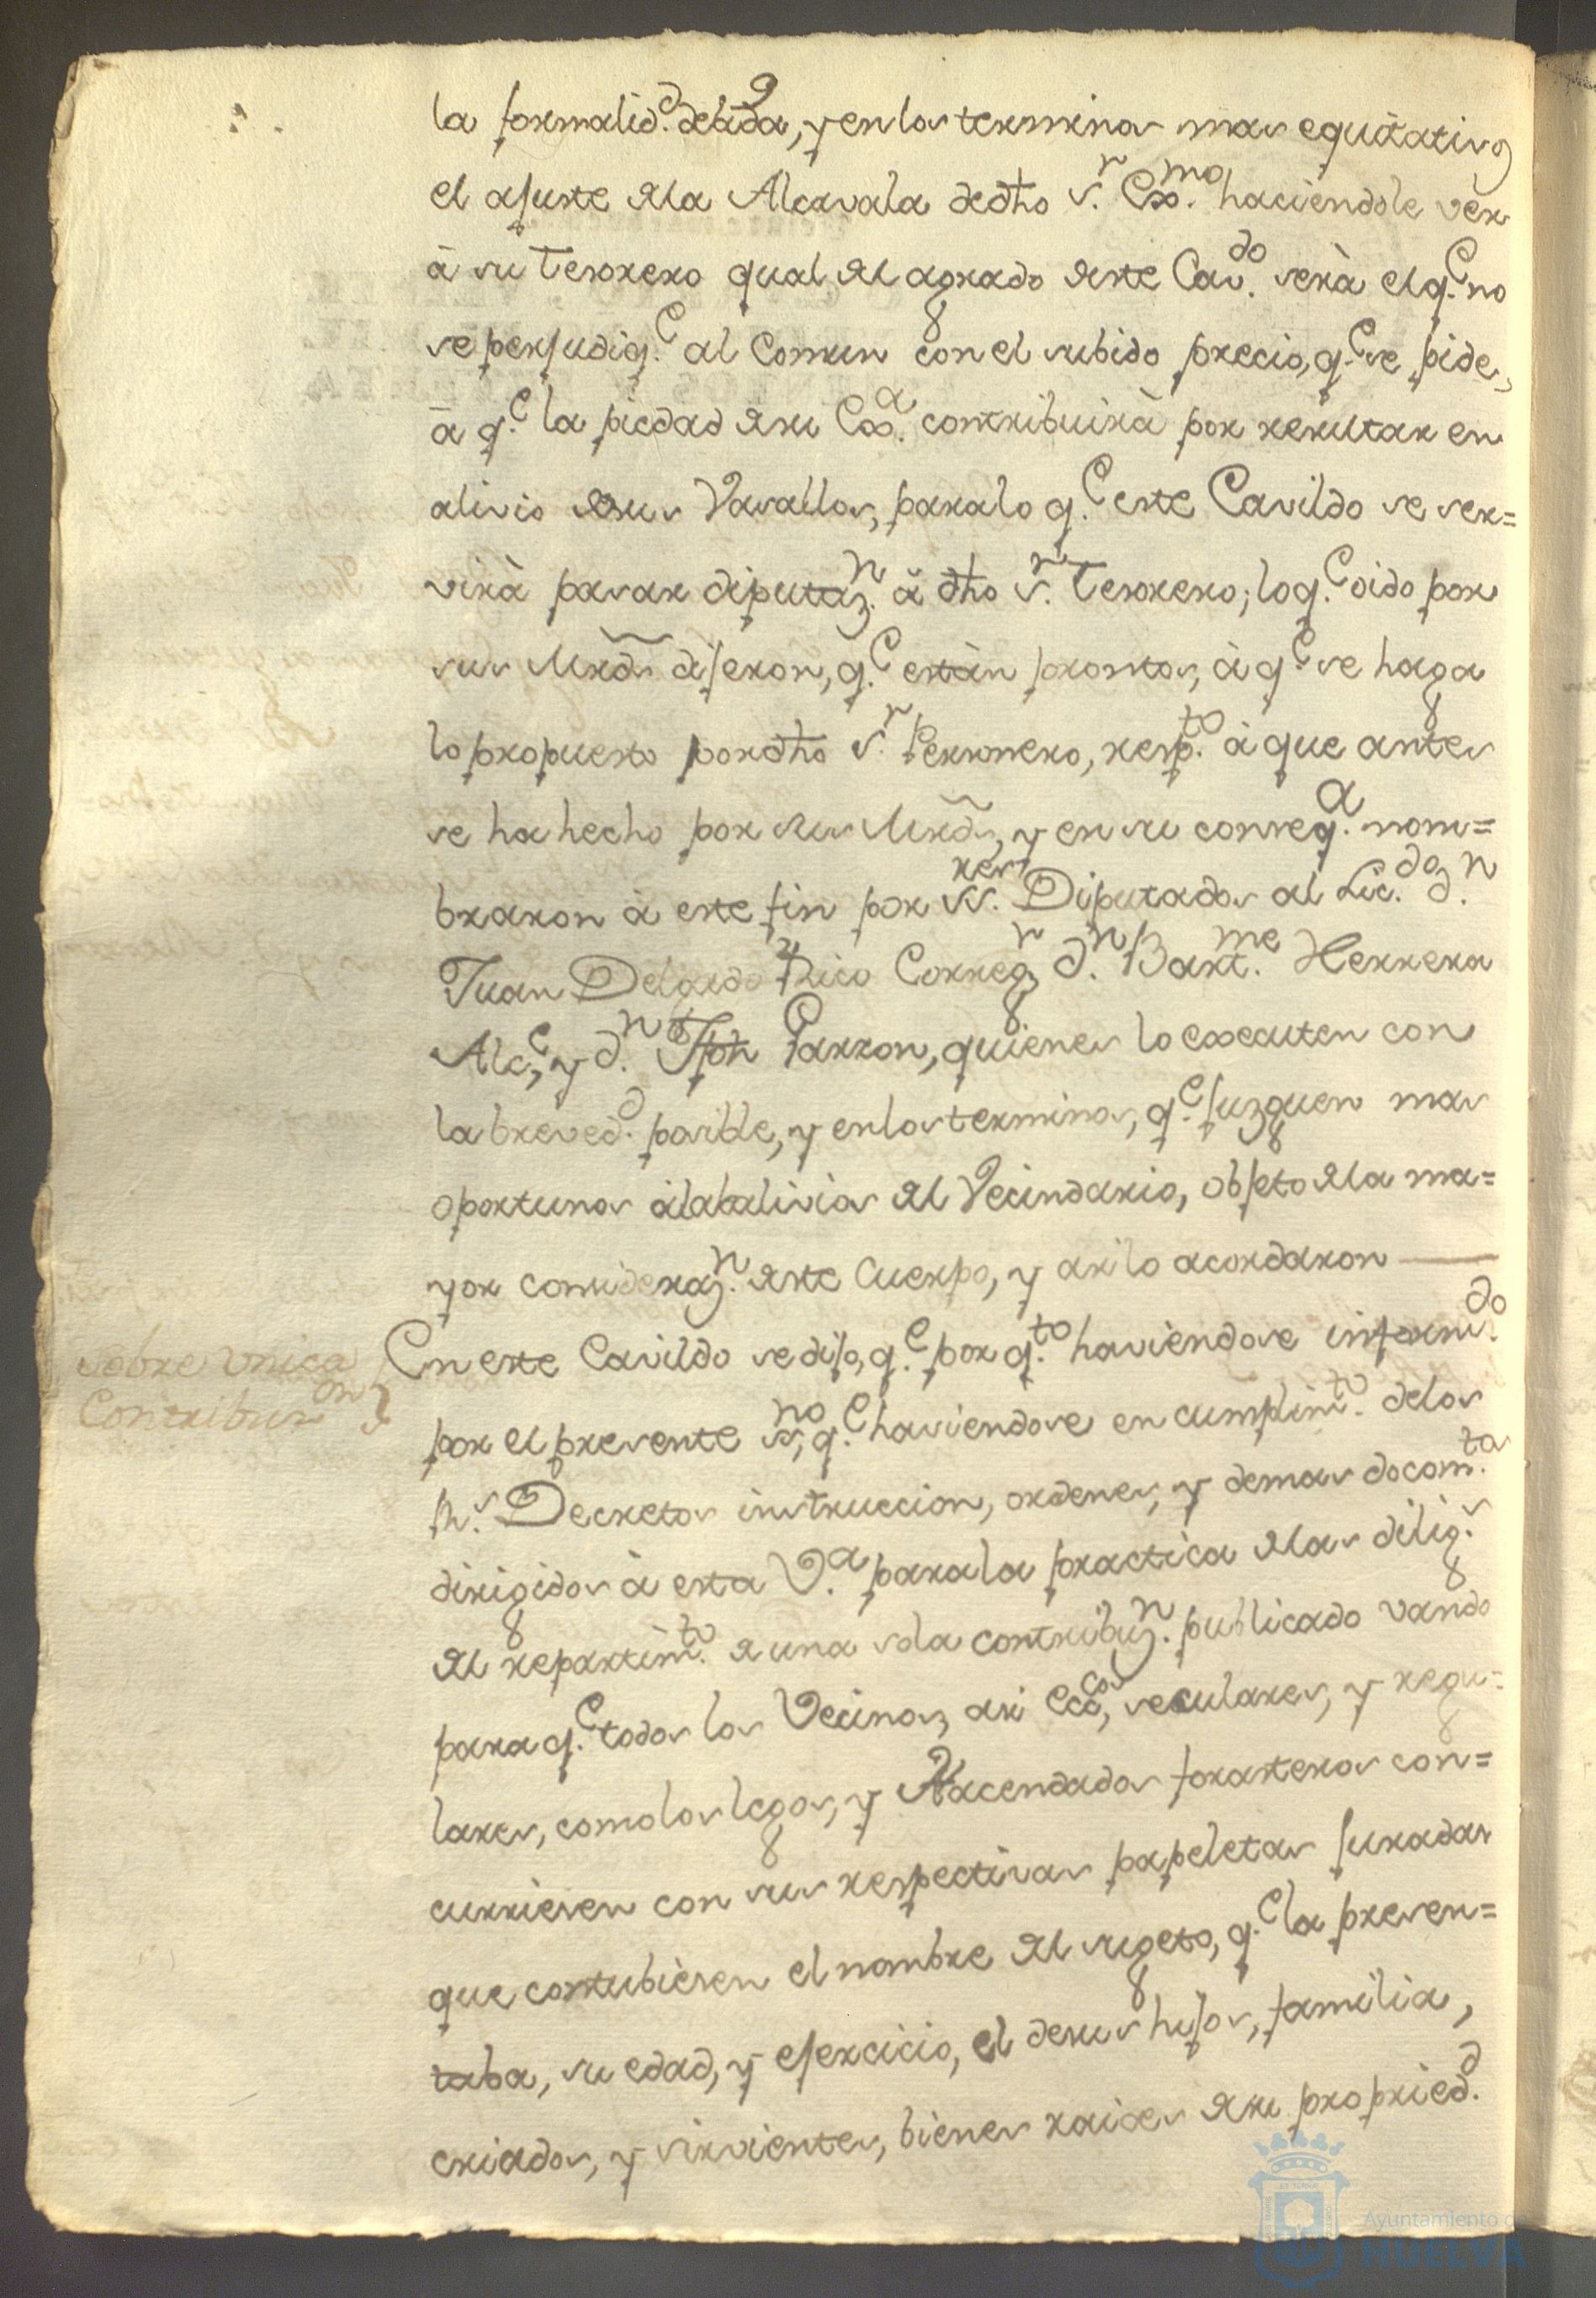 la formalid.d debida, y en los terminos mas equitativos
el ajuste de la Alcavala de dho s.r Exmo. haciendole ver
à su Tesorero qual del agrado de este Cav.do serà el q.e no
se perjudiq.e al Comun con el subido precio, q.e se pide,
à q.e la piedad de su Ex.a contribuirà por resultar en
alivio de sus Vasallos, para lo q.e este Cavildo se ser=
virà pasar diputaz.n à dho s.r Tesorero; lo q.e oido por
sus Mrds dijeron, q.e estàn prontos, à q.e se haga
lo propuesto por dho s.r Personero, resp.to à que antes
se ha hecho por sus Mrds, y en su conseq.a nom=
braron à este fin por ss.res Diputados al Lic.do d.n
Juan Delgado Rico Correg.r d.n Bart.me Herrera
Alc.e, y d.n Jph Garzon, quienes lo executen con
la breved.d posible, y en los terminos, q.e juzguen mas
oportunos à la alivios del Vecindario, objeto de la ma=
yor consideraz.n de este Cuerpo, y asi lo acordaron
sobre Unica
Contribuz.on
En este Cavildo se dijo, q.e por q.to haviendose inform.do
por el presente ss.no, q.e haviendose en cumplim.to de los
Rs. Decretos instruccion, ordenes, y demas docom.tos
dirigidos à esta V.a para la practica de las dilig.s
del repartim.to de una sola contribuz.n publicado vando
para q.e todos los Vecinos, asi Ecc.cos, seculares, y regu=
lares, como los legos, y Hacendados forasteros con=
curriesen con sus respectivas papeletas juradas
que contubiesen el nombre del sugeto, q.e la presen=
taba, su edad, y ejercicio, el de sus hijos, familia,
criados, y sirvientes, bienes raices de su propried.d
Ayuntamiento de
HUELVA